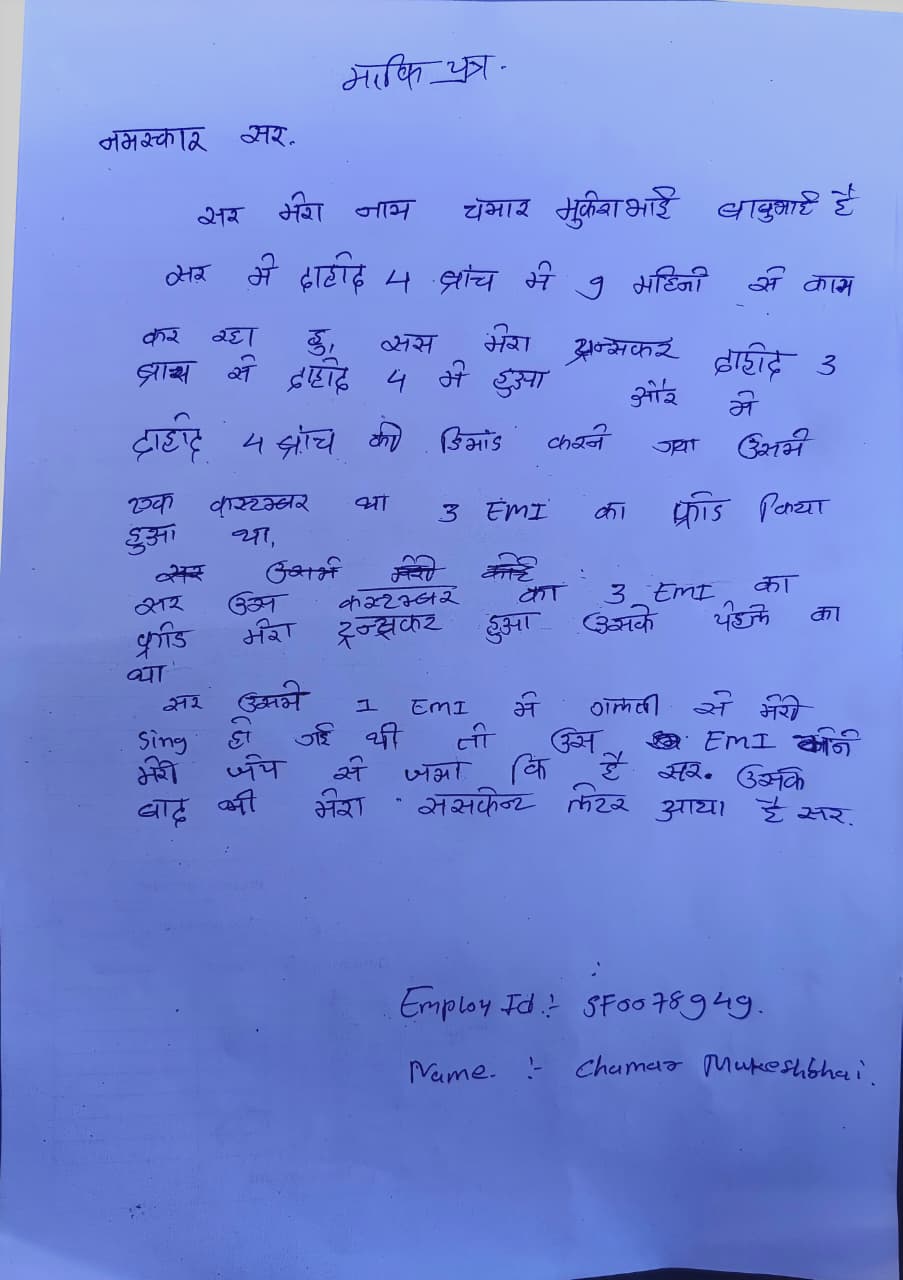 माफि पत्र.
नमस्कार सर.
सर मेरा नाम चमार मुकेशभाई बाबुभाई है
सर मे दाहोद 4 ब्रांच मे 9 महिनो से काम
कर रहा हु, सस मेरा ट्रान्सफर दाहोद 3
ब्रांच से दाहोद 4 मे हुआ और मे
दाहोद 4 ब्रांच की डिमांड करने गया उसमे
एक कस्टम्बर था 3 EMI का फ्रोड किया
हुआ था,
सर उसमे मेरी कोई
सर उस कस्टम्बर का 3 EMI का
फ्रोड मेरा ट्रन्सफर हुआ उसके पेहले का
था
सर उसमे 1 EMI मे गलती से मेरी
Sing हो गई थी तो उस EMI मेने
मेरी जेप से जमा कि है सर. उसके
बाद भी मेरा ससपेन्ट लेटर आया है सर.
Employ Id :- SF0078949.
Name. :- Chamar Mukeshbhai.